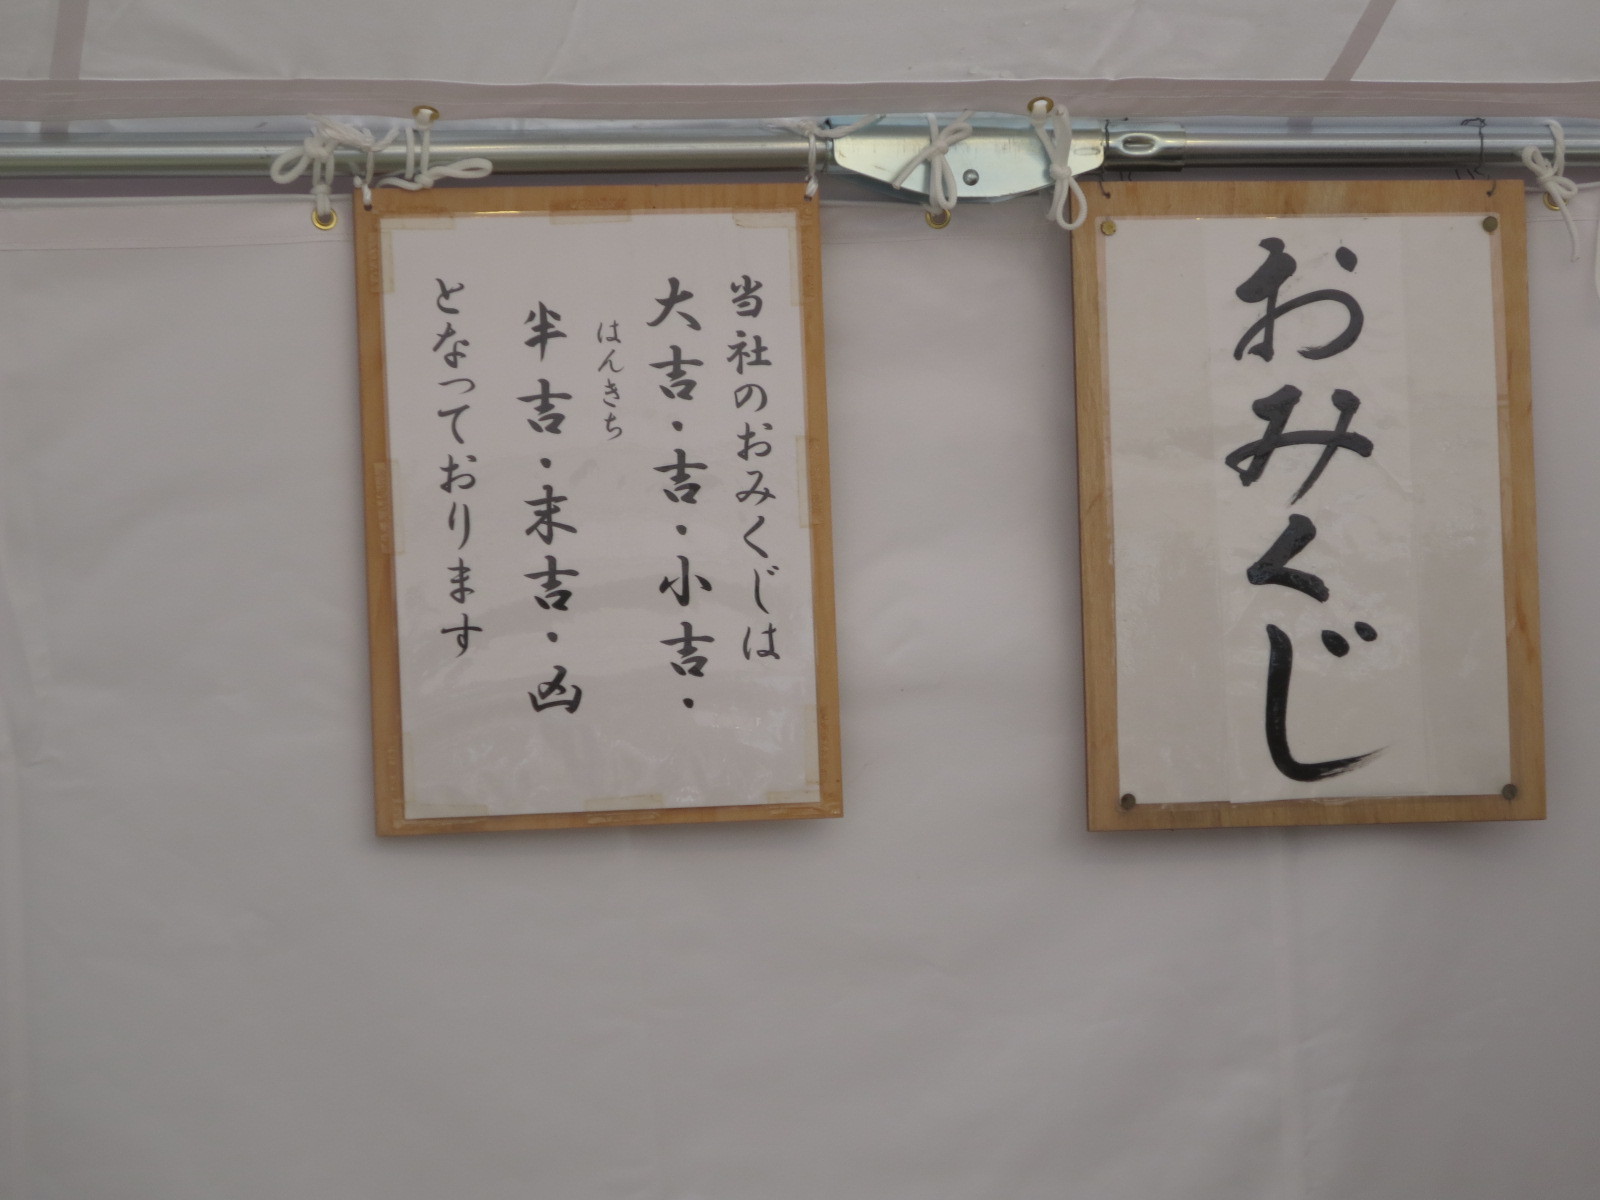 おみくじ
当社のおみくじは
大吉・吉・小吉・
はんきち
半吉・末吉・凶
となっております